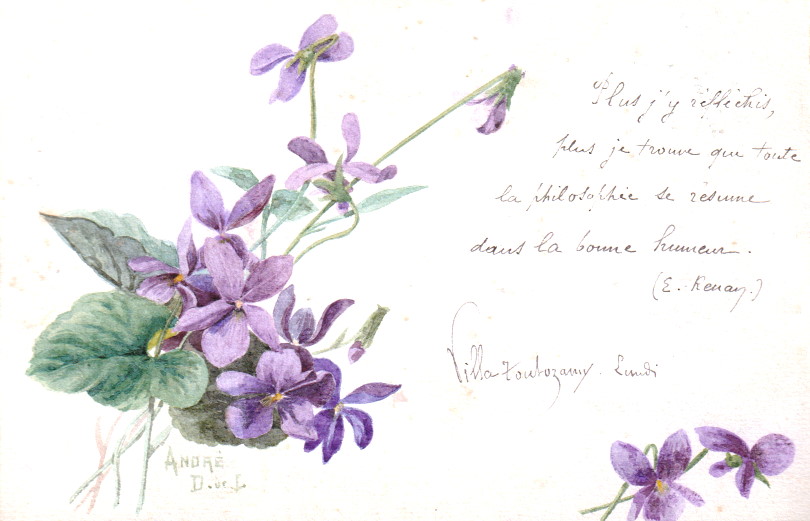 Plus j'y réfléchis,
plus je trouve que toute
la philosophie se résume
dans la bonne humeur.
(E. Renan.)
Villa Lundi
ANDRÉ
D. de L